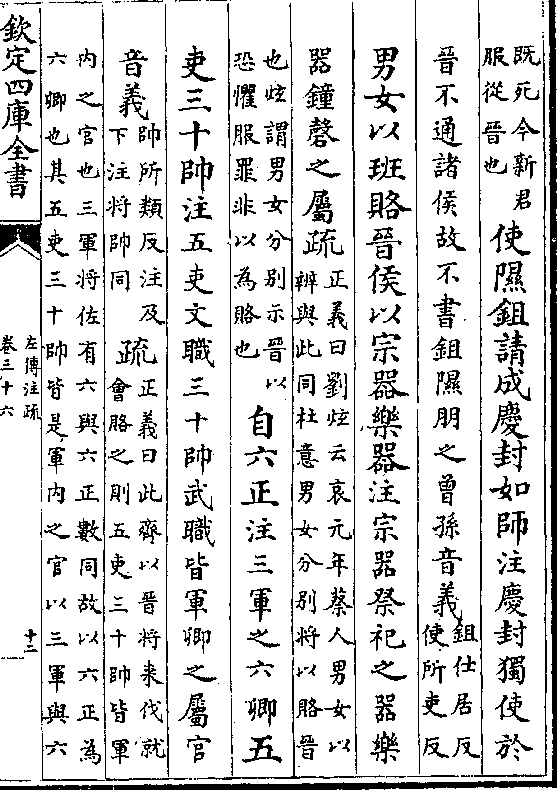 既死今新君
服從晉也
使隰鉏請成慶封如師注慶封獨使於
晉不通諸侯故不書鉏隰朋之曾孫音義
鉏仕居反
使所吏反
男女以班賂晉侯以宗器樂器注宗器祭祀之器樂
器鐘磬之屬疏
正義曰劉炫云哀元年蔡人男女以
辨與此同杜意男女分別將以賂晉
也炫謂男女分別示晉以
恐懼服罪非以為賂也
自六正注三軍之六卿五
吏三十帥注五吏文職三十帥武職皆軍卿之屬官
音義
帥所類反注及
下注將帥同
疏
正義曰此齊以晉將來伐就
會賂之則五吏三十帥皆軍
內之官也三軍將佐有六與六正數同故以六正為
六卿也其五吏三十帥皆是軍內之官以三軍與六
欽定四庫全書
左傳注疏
卷三十六
十二